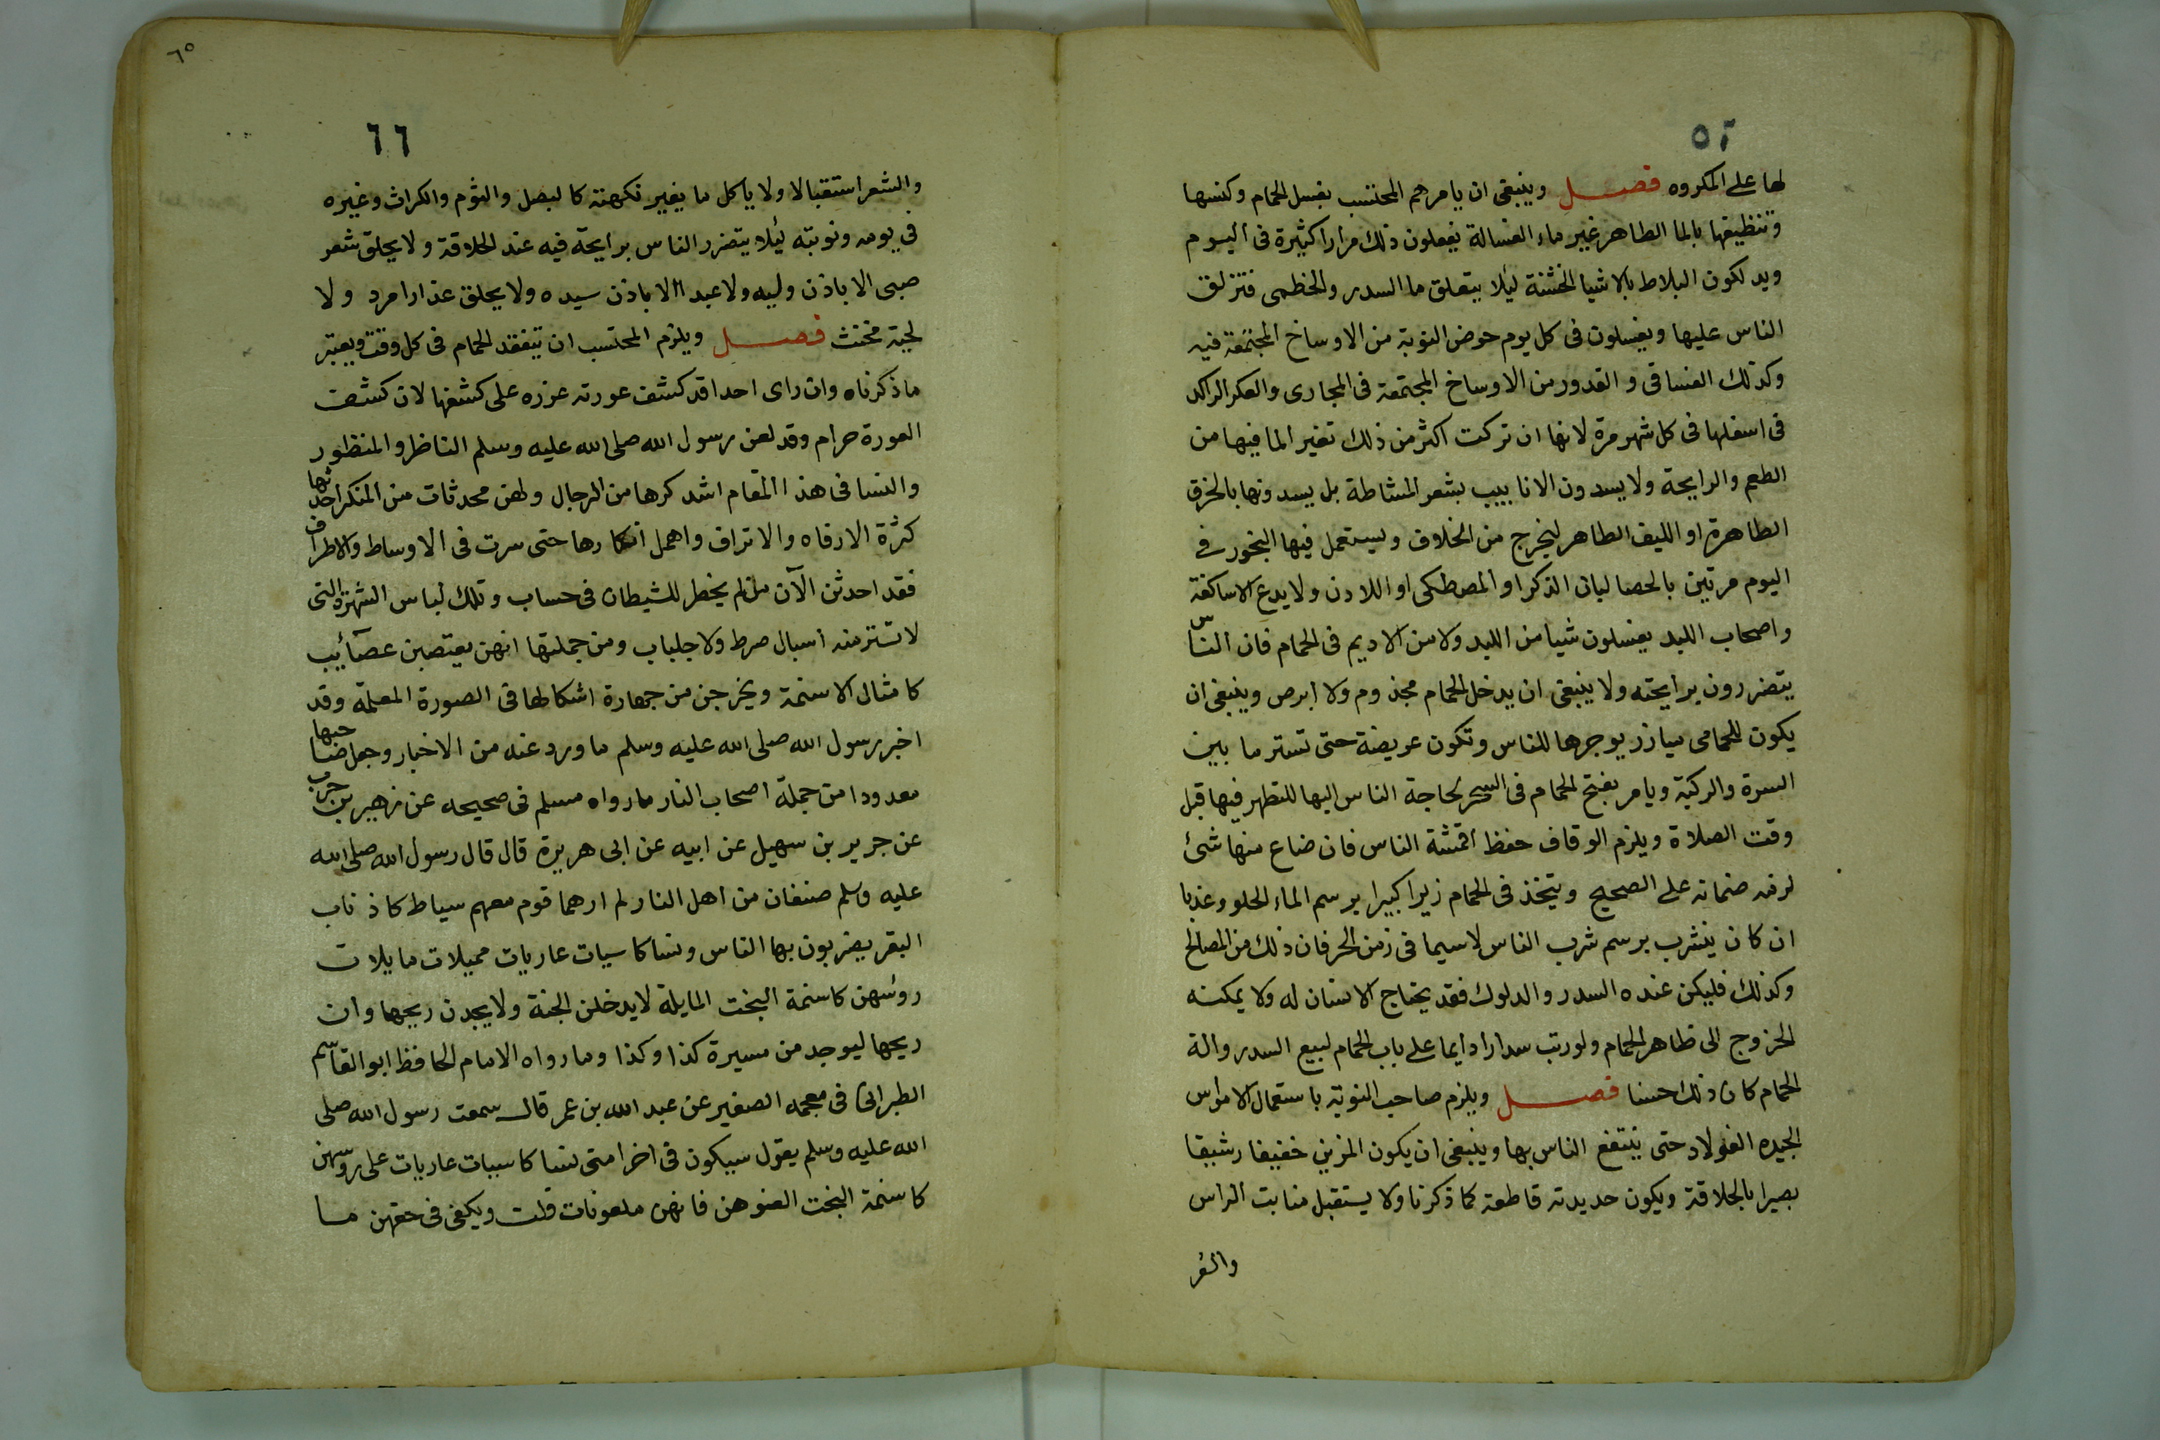 ٦٥
لها على المكروه فصل وينبغى ان يامرهم المحتسب بغسل الحمام وكنسها
وتنظيفها بالما الطاهر غير ماء الغسالة يفعلون ذلك مرارا كثيرة فى اليوم
ويدلكون البلاط بالاشيا الخشنة ليلا يتعلق ما السدر والخطمى فتزلق
الناس عليها ويغسلون فى كل يوم حوض النوبة من الاوساخ المجتمعة فيه
وكذلك الفساقى والقدور من الاوساخ المجتمعة فى المجارى والعكر الراكد
فى اسفلها فى كل شهر مرة لانها ان تركت اكثر من ذلك تغير الما فيها من
الطعم والرايحة ولا يسدون الانابيب بشعر المشاطة بل يسدونها بالخرق
الطاهرة او الليف الطاهر ليخرج من الخلاف ويستعمل فيها البخور فى
اليوم مرتين بالحصا لبان الذكر او المصطكى او اللادن ولا يدع الاساكفة
واصحاب اللبد يغسلون شيا من اللبد ولا من الاديم فى الحمام فان الناس
يتضررون برايحته ولا ينبغى ان يدخل الحمام مجذوم ولا ابرص وينبغى ان
يكون للحمامى ميازر يوجرها للناس وتكون عريضة حتى تستر ما بين
السرة والركبة ويامر بفتح الحمام فى السحر لحاجة الناس اليها للتطهر فيها قبل
وقت الصلاة ويلزم الوقاف حفظ اقمشة الناس فان ضاع منها شئ
لزمه ضمانه على الصحيح ويتخذ فى الحمام زيرا كبيرا برسم الماء الحلو وعذبا
ان كان يشرب برسم شرب الناس لاسيما فى زمن الحر فان ذلك من المصالح
وكذلك فليكن عنده السدر والدلوك فقد يحتاج الانسان له ولا يمكنه
الخروج الى ظاهر الحمام ولو رتب سدارا دايما على باب الحمام لبيع السدر والة
الحمام كان ذلك حسنا فصل ويلزم صاحب النوبة باستعمال الامواس
الجيده الفولاد حتى ينتفع الناس بها وينبغى ان يكون المزين خفيفا رشيقا
بصيرا بالحلاقة ويكون حديدته قاطعة كما ذكرنا ولا يستقبل منابت الراس
والشعر
٦٥
٦٦
والشعر استقبالا ولا ياكل ما يغير نكهته كالبصل والثوم والكراث وغيره
فى يومه ونوبته ليلا يتضرر الناس برايحة فيه عند الحلاقة ولا يحلق شعر
صبى الا باذن وليه ولا عبد الا باذن سيده ولا يحلق عذارا مرد ولا
لحية مخنث فصل ويلزم المحتسب ان يتفقد الحمام فى كل وقت ويعتبر
ما ذكرناه وان راى احدا قد كشف عورته عزره على كشفها لان كشف
العورة حرام وقد لعن رسول الله صلى الله عليه وسلم الناظر والمنظور
والنسا فى هذا المقام اشد كرها من الرجال ولهن محدثات من المنكر احدثها
كثرة الارفاه والاتراف واهمل انكارها حتى سرت فى الاوساط والاطراف
فقد احدثن الآن ما لم يخطر للشيطان فى حساب وتلك لباس الشهرة التى
لا تستر منه اسبال مرط ولا جلباب ومن جملتها انهن يعتصبن عصآئب
كامثال الاسنمة ويخرجن من جهارة اشكالها فى الصورة المعلمة وقد
اخبر رسول الله صلى الله عليه وسلم ما ورد عنه من الاخبار وجعل صاحبها
معدودا من جملة اصحاب النار ما رواه مسلم فى صحيحه عن زهير بن حرب
عن جرير بن سهيل عن ابيه عن ابى هريرة قال قال رسول الله صلى الله
عليه وسلم صنفان من اهل النار لم ارهما قوم معهم سياط كاذناب
البقر يضربون بها الناس ونسا كاسيات عاريات مميلات مايلات
روسهن كاسنمة البخت المايلة لا يدخلن الجنة ولا يجدن ريحها وان
ريحها ليوجد من مسيرة كذا وكذا وما رواه الامام الحافظ ابو القاسم
الطبرانى فى معجمه الصغير عن عبد الله بن عمر قال سمعت رسول الله صلى
الله عليه وسلم يقول سيكون فى اخر امتى نسا كاسيات عاريات على روسهن
كاسنمة البخت العنوهن فانهن ملعونات قلت ويكفى فى حقهن ما